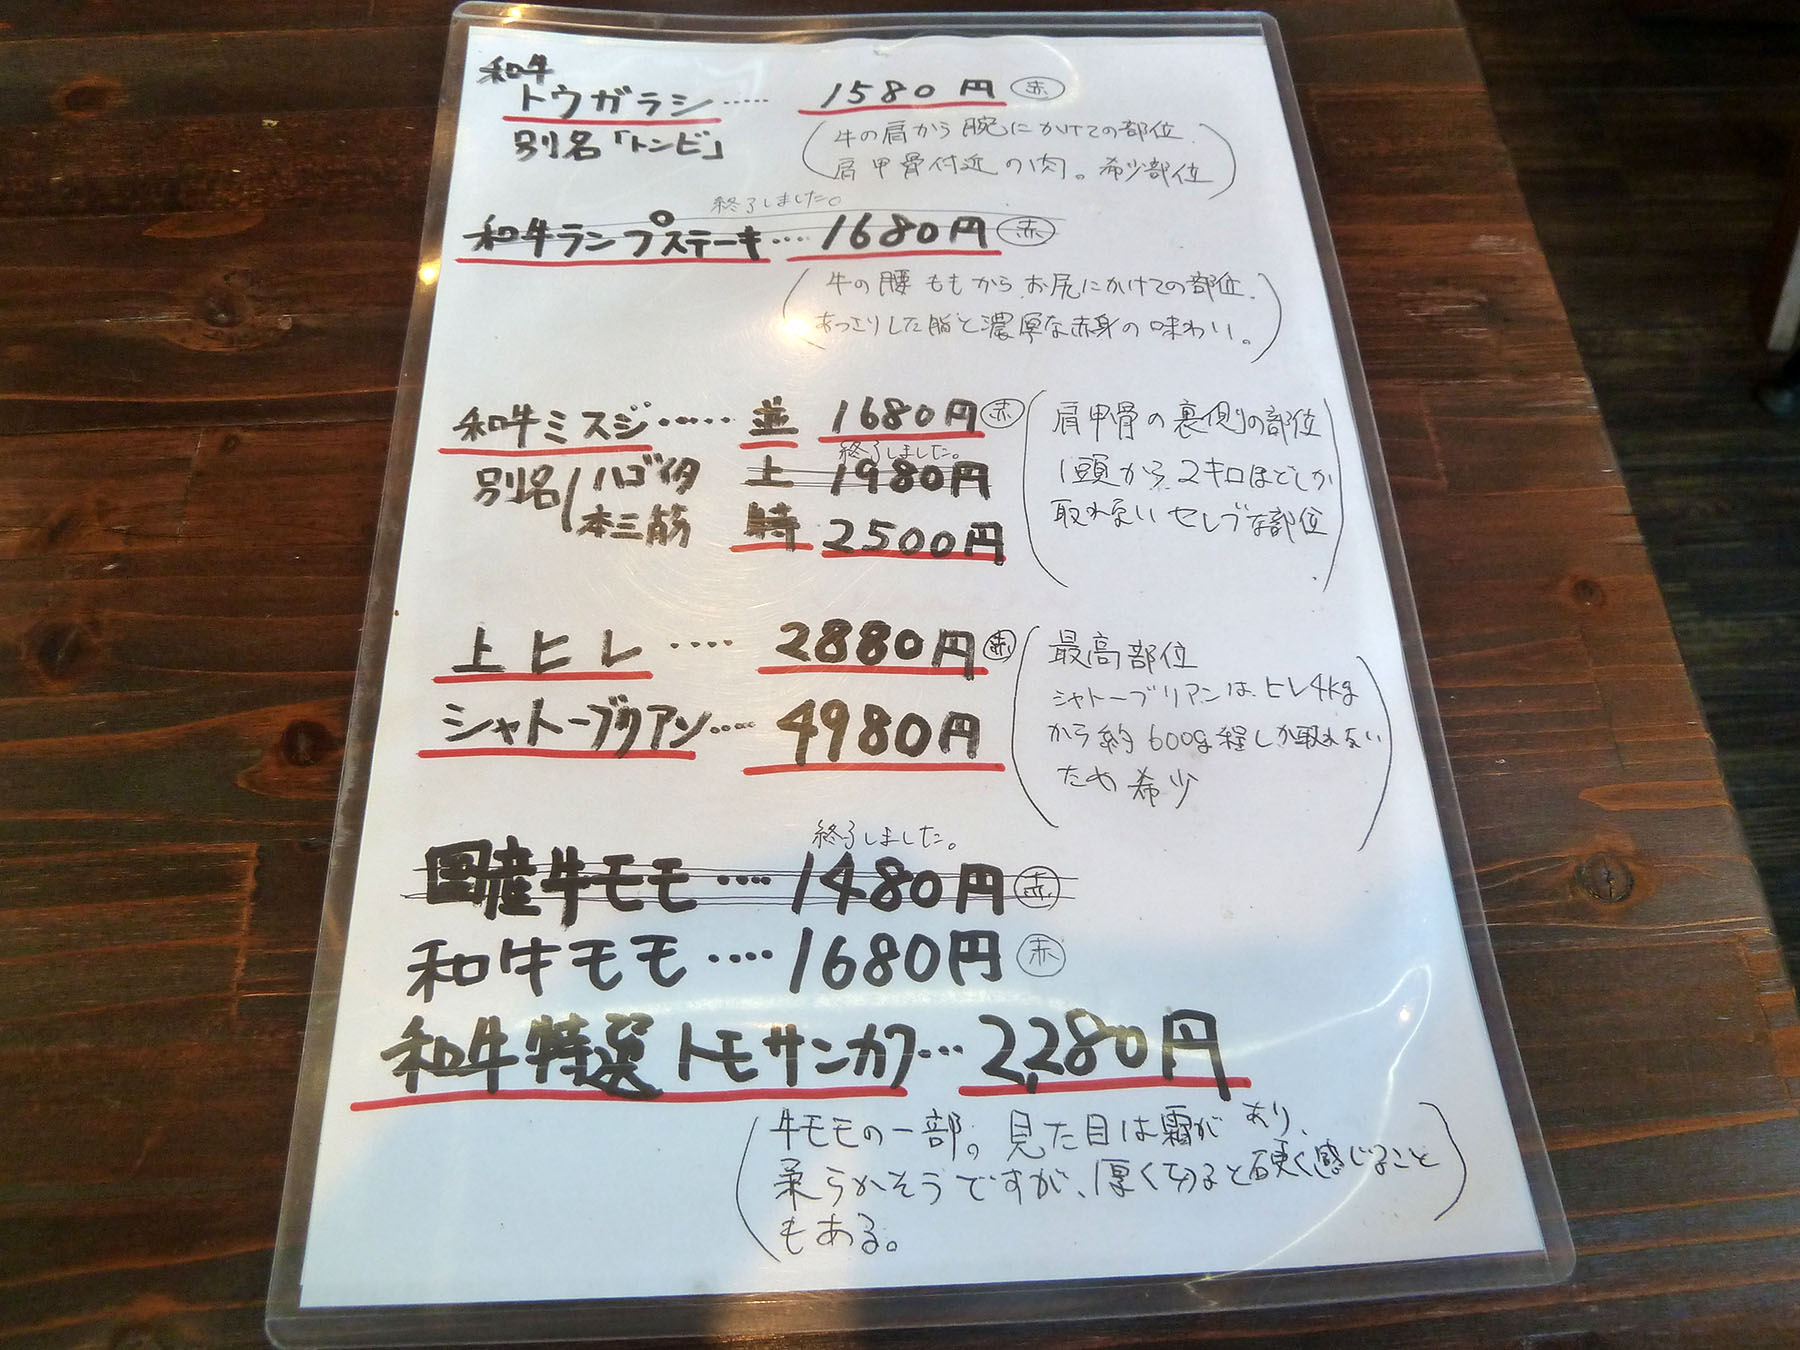 和牛
トウガラシ‥‥‥ 1580円 赤
別名「トンビ」
(牛の肩から腕にかけての部位.
肩甲骨付近の肉。希少部位)
終了しました。
和牛ランプステーキ‥‥ 1680円 赤
(牛の腰 ももから お尻にかけての部位.
あっさりした脂と濃厚な赤身の味わい。)
和牛ミスジ‥‥‥ 並 1680円 赤
終了しました。
別名 ハゴイタ 上 1980円
本三筋 特 2500円
(肩甲骨の裏側の部位
1頭から 2キロほどしか
取れない セレブな部位)
上ヒレ‥‥ 2880円 赤
シャトーブリアン‥‥ 4980円
(最高部位
シャトーブリアンは、ヒレ4kg
から約 600g程しか取れない
ため 希少)
終了しました。
国産牛モモ‥‥ 1480円 赤
和牛モモ‥‥ 1680円 赤
和牛特選 トモサンカク‥‥ 2,280円
(牛モモの一部。見た目は霜があり、
柔らかそうですが、厚く切ると硬く感じること
もある。)